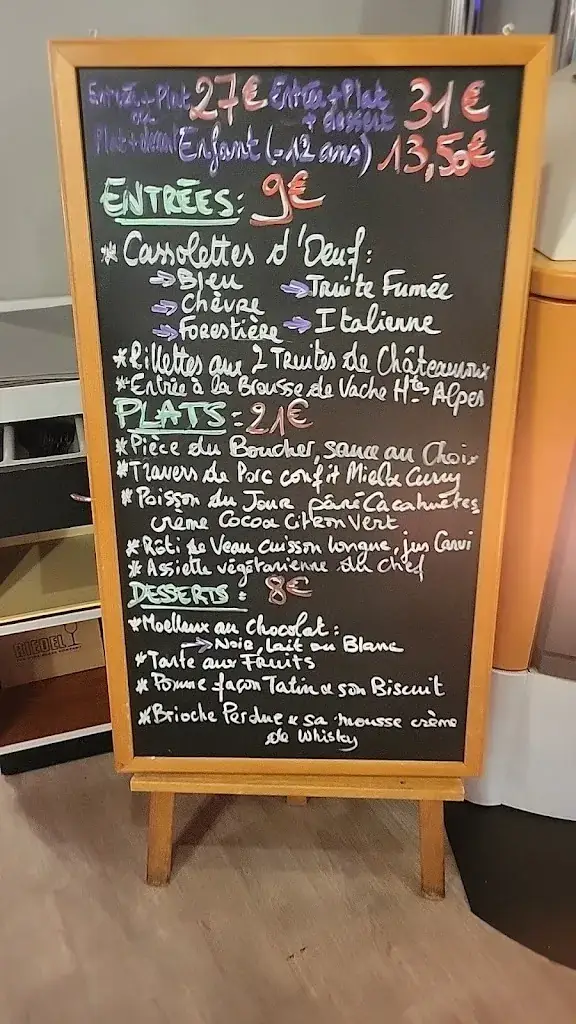 Entrée + Plat 27€ Entrée + Plat 31€
ou + dessert
Plat + dessert Enfant (-12 ans) 13,50€
ENTRÉES: 9€
* Cassolettes d'Oeuf:
→ Bleu → Truite Fumée
→ Chèvre
→ Forestière → Italienne
* Rillettes aux 2 Truites de Châteauroux
* Entrée à la Brousse de Vache Htes Alpes
PLATS: 21€
* Pièce du Boucher, sauce au Choix
* Travers de Porc confit Miel & Curry
* Poisson du Jour pané Cacahuètes
crème Cocoa Citron Vert
* Rôti de Veau cuisson longue, jus Carvi
* Assiette végétarienne du chef
DESSERTS: 8€
* Moelleux au Chocolat:
→ Noir, Lait ou Blanc
* Tarte aux Fruits
* Pomme façon Tatin & son Biscuit
* Brioche Perdue & sa mousse crème
de Whisky
RIEDEL